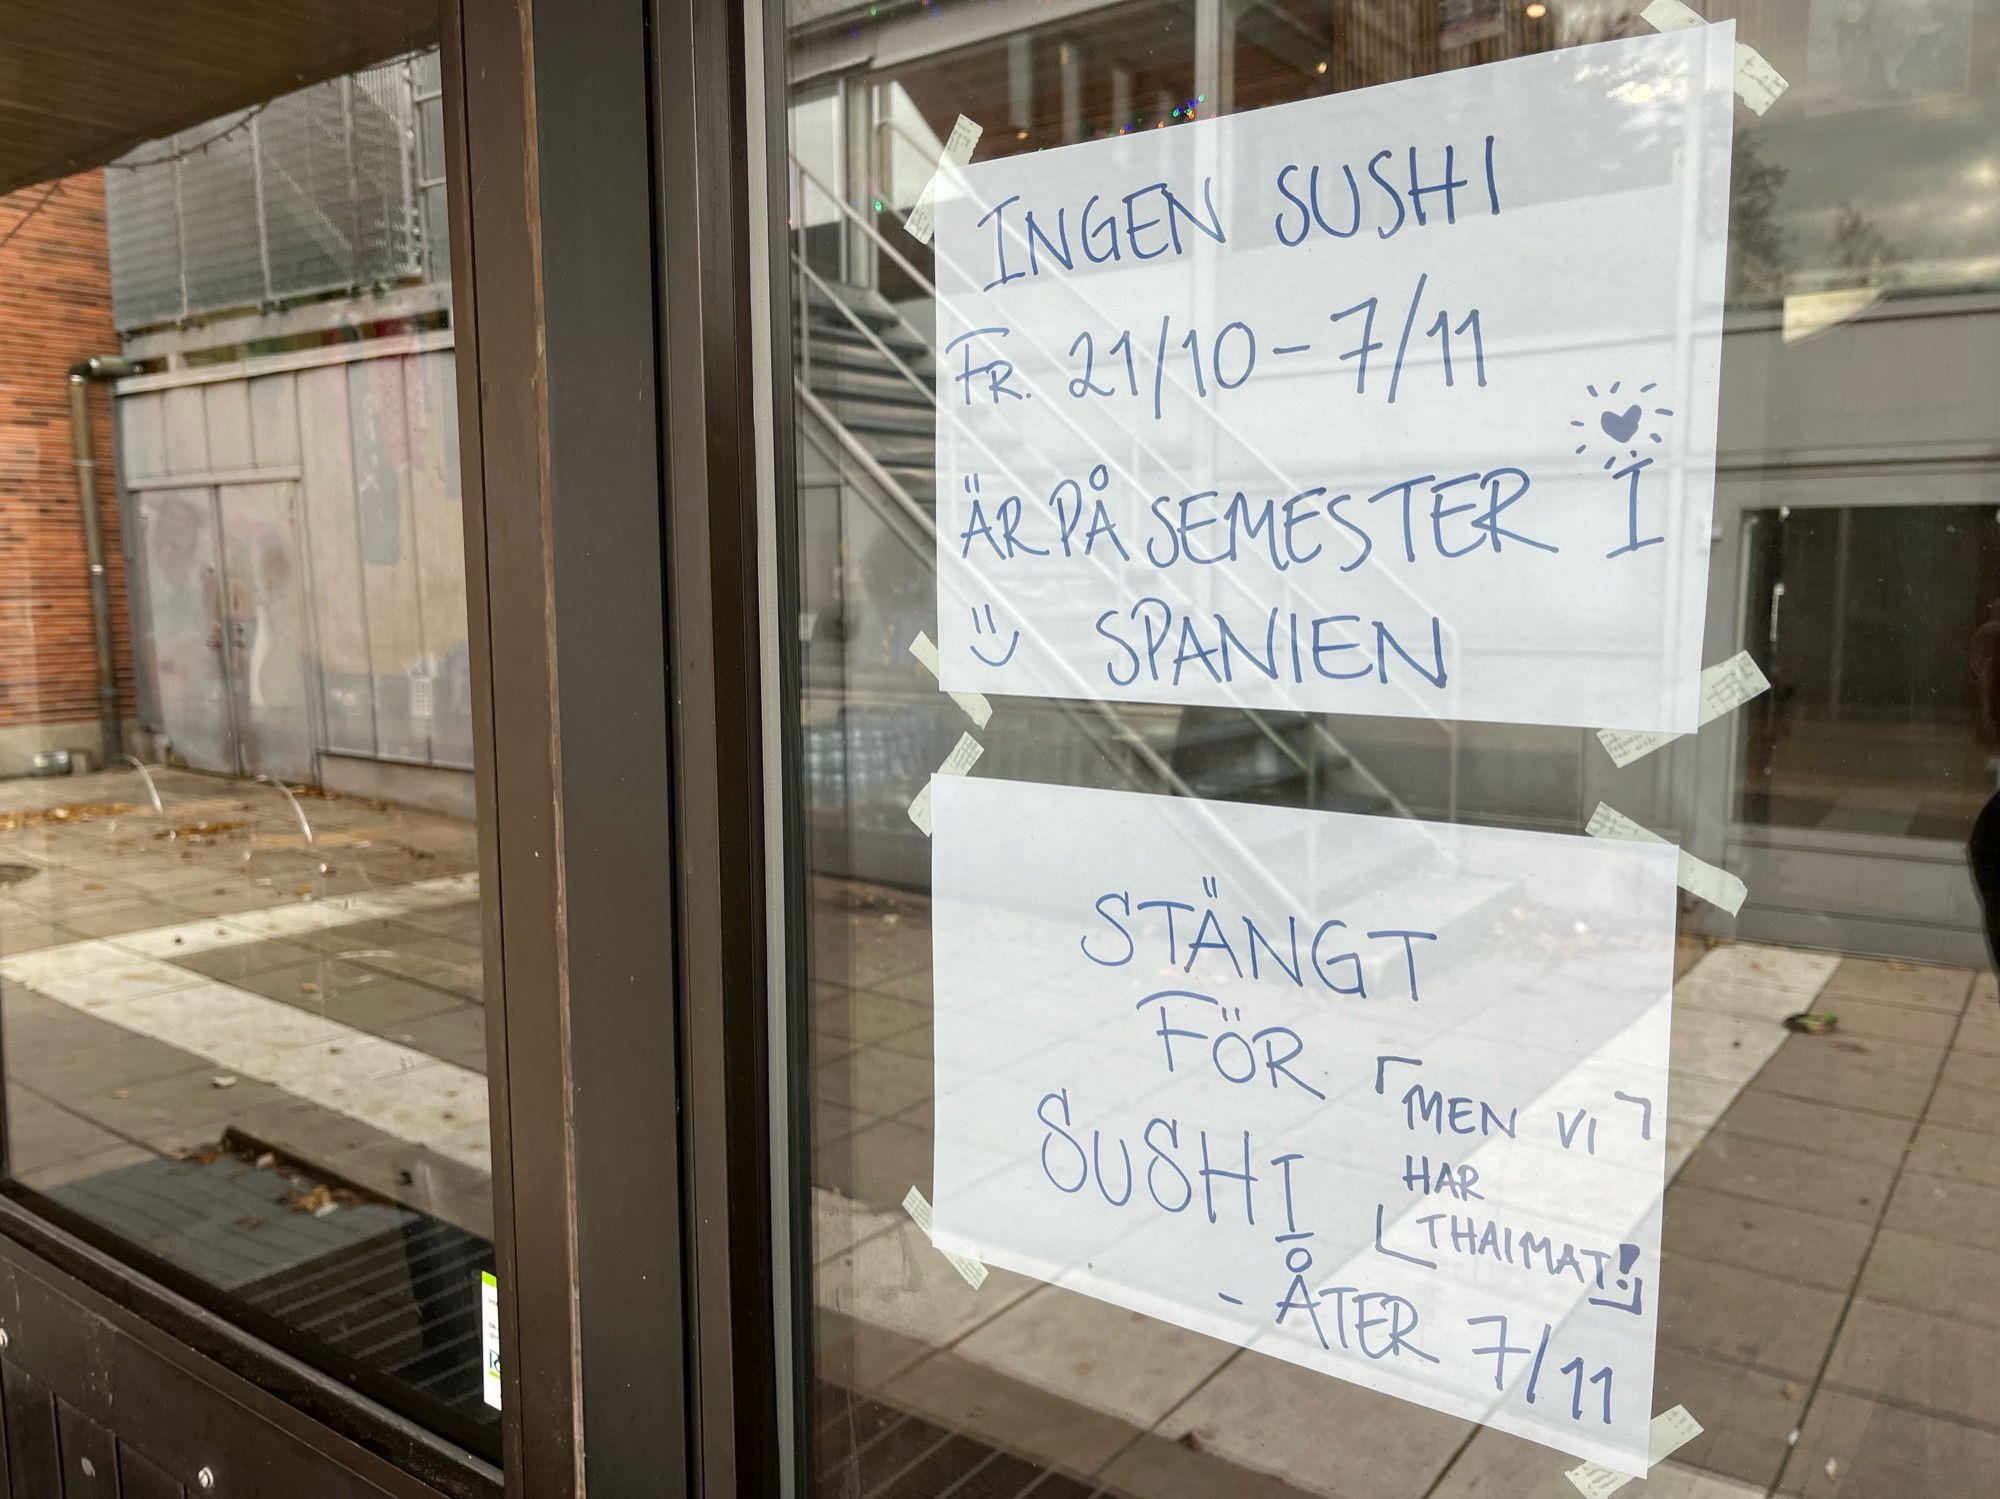 INGEN SUSHI
FR. 21/10 - 7/11
ÄR PÅ SEMESTER I
SPANIEN
STÄNGT
FÖR
SUSHI
MEN VI
HAR
THAIMAT!
- ÅTER 7/11